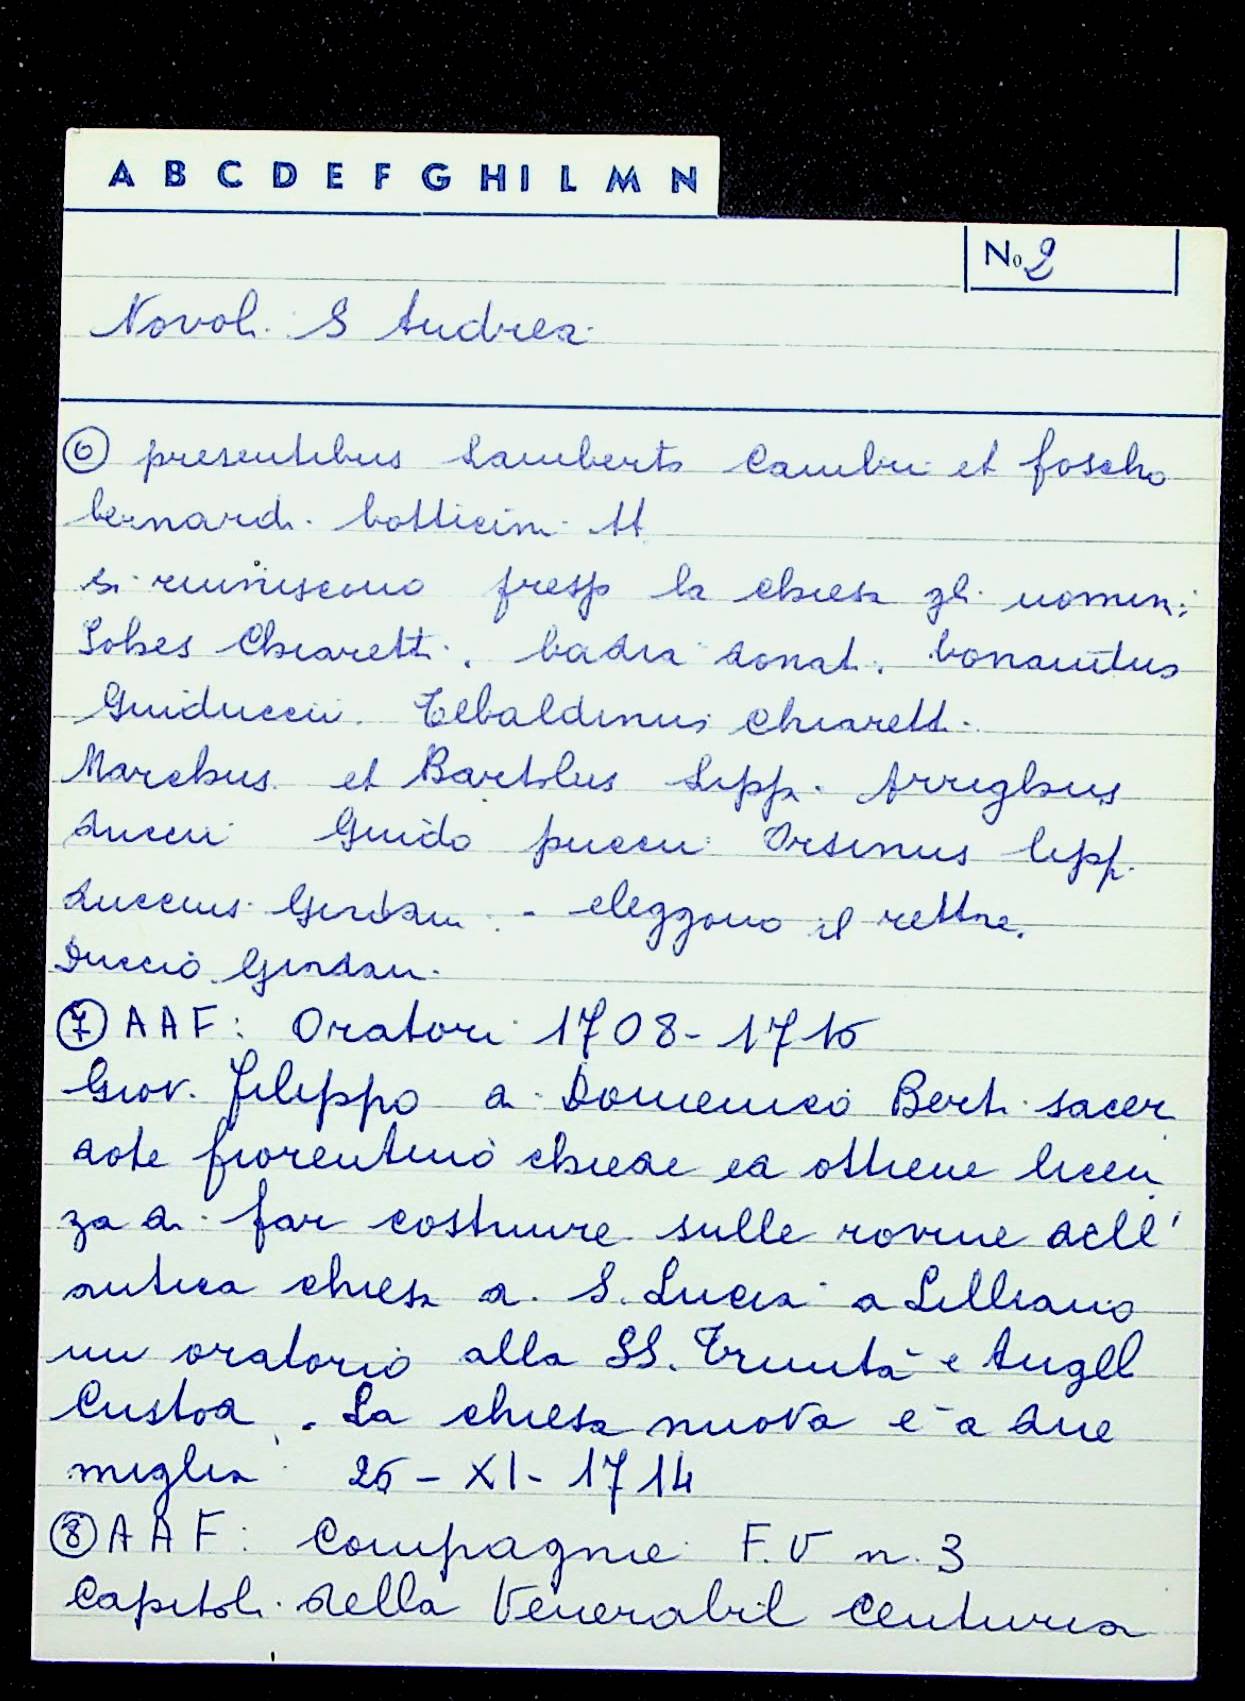 A B C D E F G HI L M N
No 2
Novoli S Andrea
⑥ presentibus Lamberto Cambii et foscho
bernardi botticini tt
si riuniscono presso la chiesa gli uomini
Lohes Chiaretti, badia donati, bonaiutus
Guiduccii Tebaldinus chiaretti
Marchus et Bartolus Lippi Arrighus
duccii Guido puccii Orsinus lippi
duccius Giordani - eleggono il rettore.
Duccio Giordani
⑦ AAF: Oratori 1708-1716
Giov. Filippo di Domenico Berti sacer
dote fiorentino chiede ed ottiene licen
za di far costruire sulle rovine dell'
antica chiesa di S. Lucia a Lilliano
un oratorio alla SS. Trinità e Angeli
Custodi. La chiesa nuova è a due
miglia 26-XI-1714
⑧ AAF: Compagnie F.V n. 3
Capitoli della Venerabil Centuria